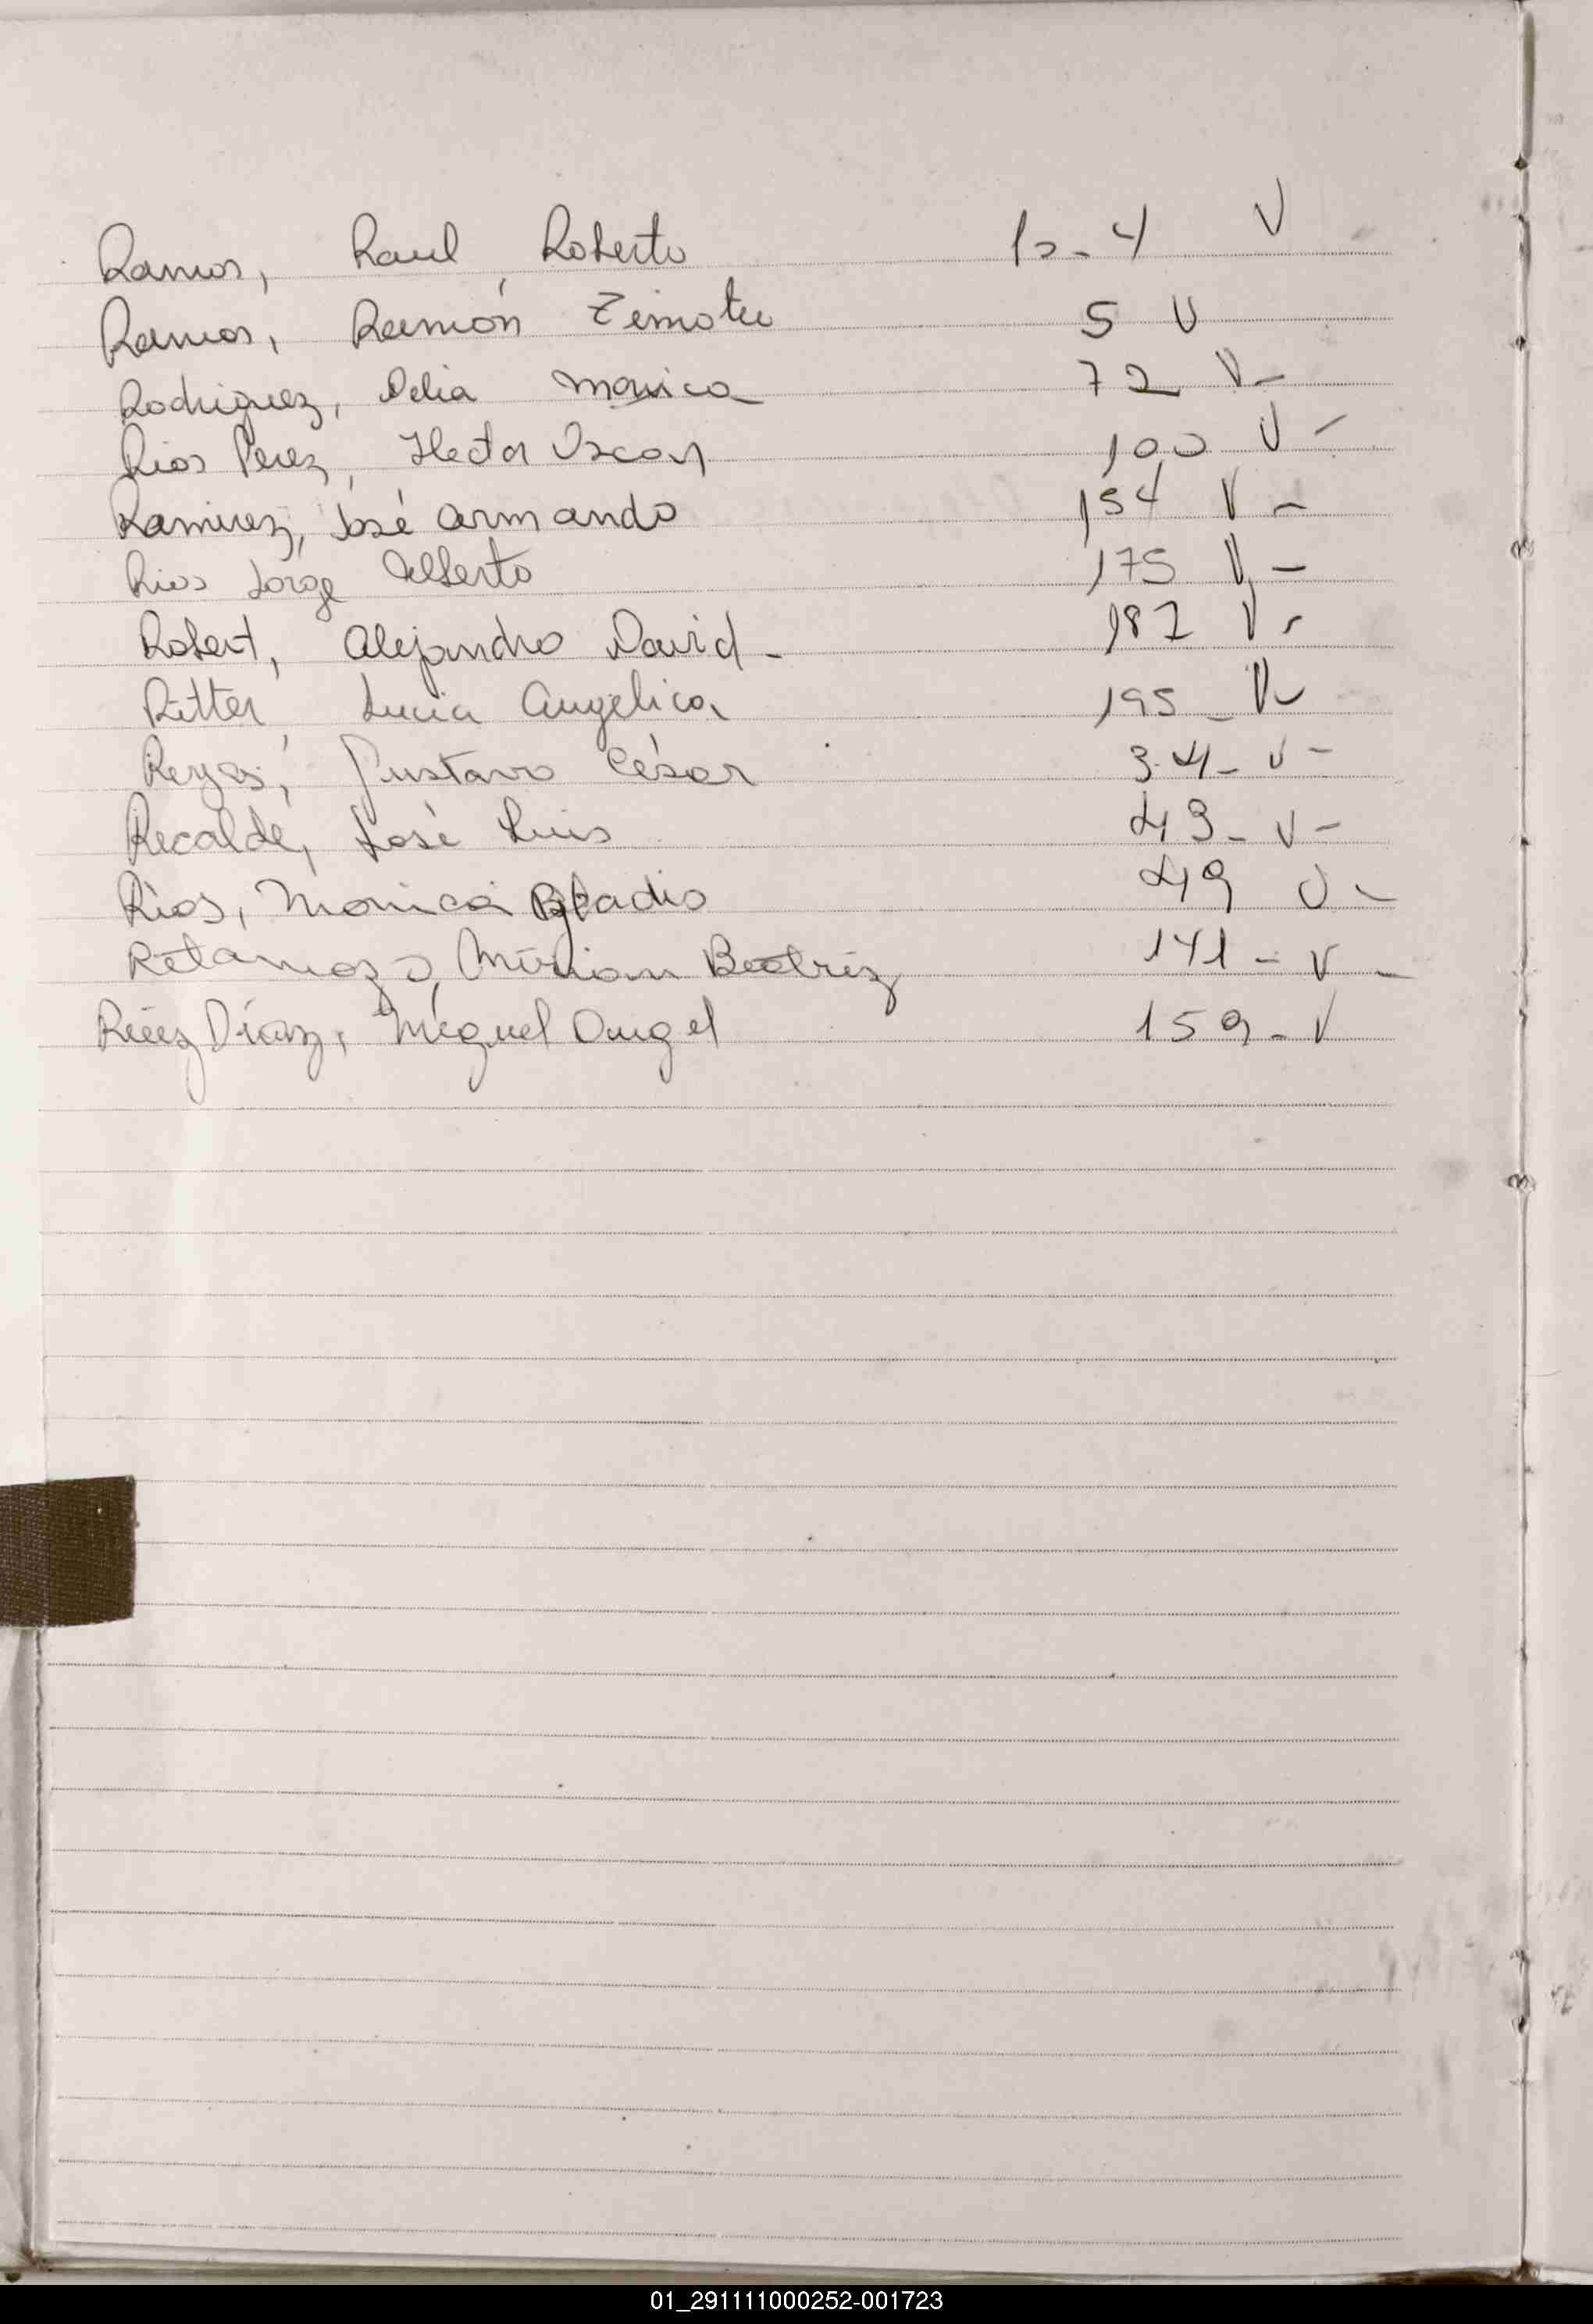 Ramos, Raul Roberto fs. 4 V
Ramos, Ramón Timoteo 5 V
Rodriguez, Delia Monica 72 V-
Rios Perez, Hector Oscar 100 V-
Ramirez, José Armando 154 V-
Rios Jorge Alberto 175 V-
Robert, Alejandro David- 187 V-
Ritter, Lucia Angelica 195- V-
Reyes, Gustavo César 34- V-
Recalde, José Luis 43- V-
Rios, Monica Gladis 49 V-
Retamozo, Miriam Beatriz 141- V-
Díaz, Miguel Angel 159- V
01_291111000252-001723